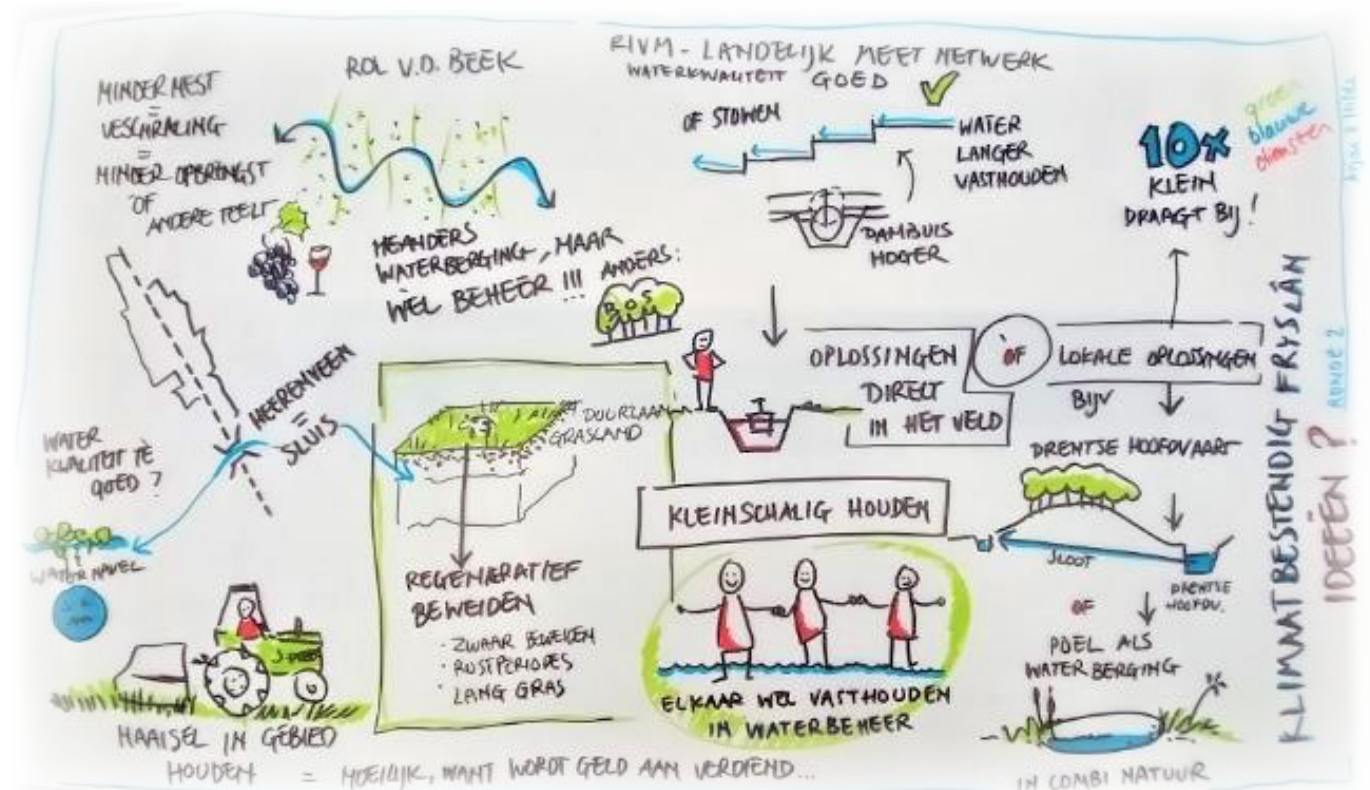 MINDER MEST
=
VESCHRALING
=
MINDER OPBRENGST
OF
ANDERE TEELT
ROL V.D. BEEK
MEANDERS
WATERBERGING, MAAR
WEL BEHEER !!! ANDERS:
BOS
RIVM - LANDELIJK MEET NETWERK
WATERKWALITEIT GOED
OF STUWEN
WATER
LANGER
VASTHOUDEN
DAMBUIS
HOGER
10x
KLEIN
DRAAGT BIJ!
groen
blauwe
diensten
Arjan & Hilda
HEERENVEEN
=
SLUIS
WATER
KWALITEIT TE
GOED?
WATERNAVEL
DUURZAAM
GRASLAND
REGENERATIEF
BEWEIDEN
· ZWAAR BEWEIDEN
· RUSTPERIODES
· LANG GRAS
OPLOSSINGEN
DIRECT
IN HET VELD
OF
LOKALE OPLOSSINGEN
BIJV
DRENTSE HOOFDVAART
SLOOT
DRENTSE
HOOFDV.
OF
POEL ALS
WATERBERGING
IN COMBI NATUUR
KLEINSCHALIG HOUDEN
ELKAAR WEL VASTHOUDEN
IN WATERBEHEER
MAAISEL IN GEBIED
HOUDEN = MOEILIJK, WANT WORDT GELD AAN VERDIEND...
KLIMAATBESTENDIG FRYSLÂN
IDEEËN?
RONDE 2